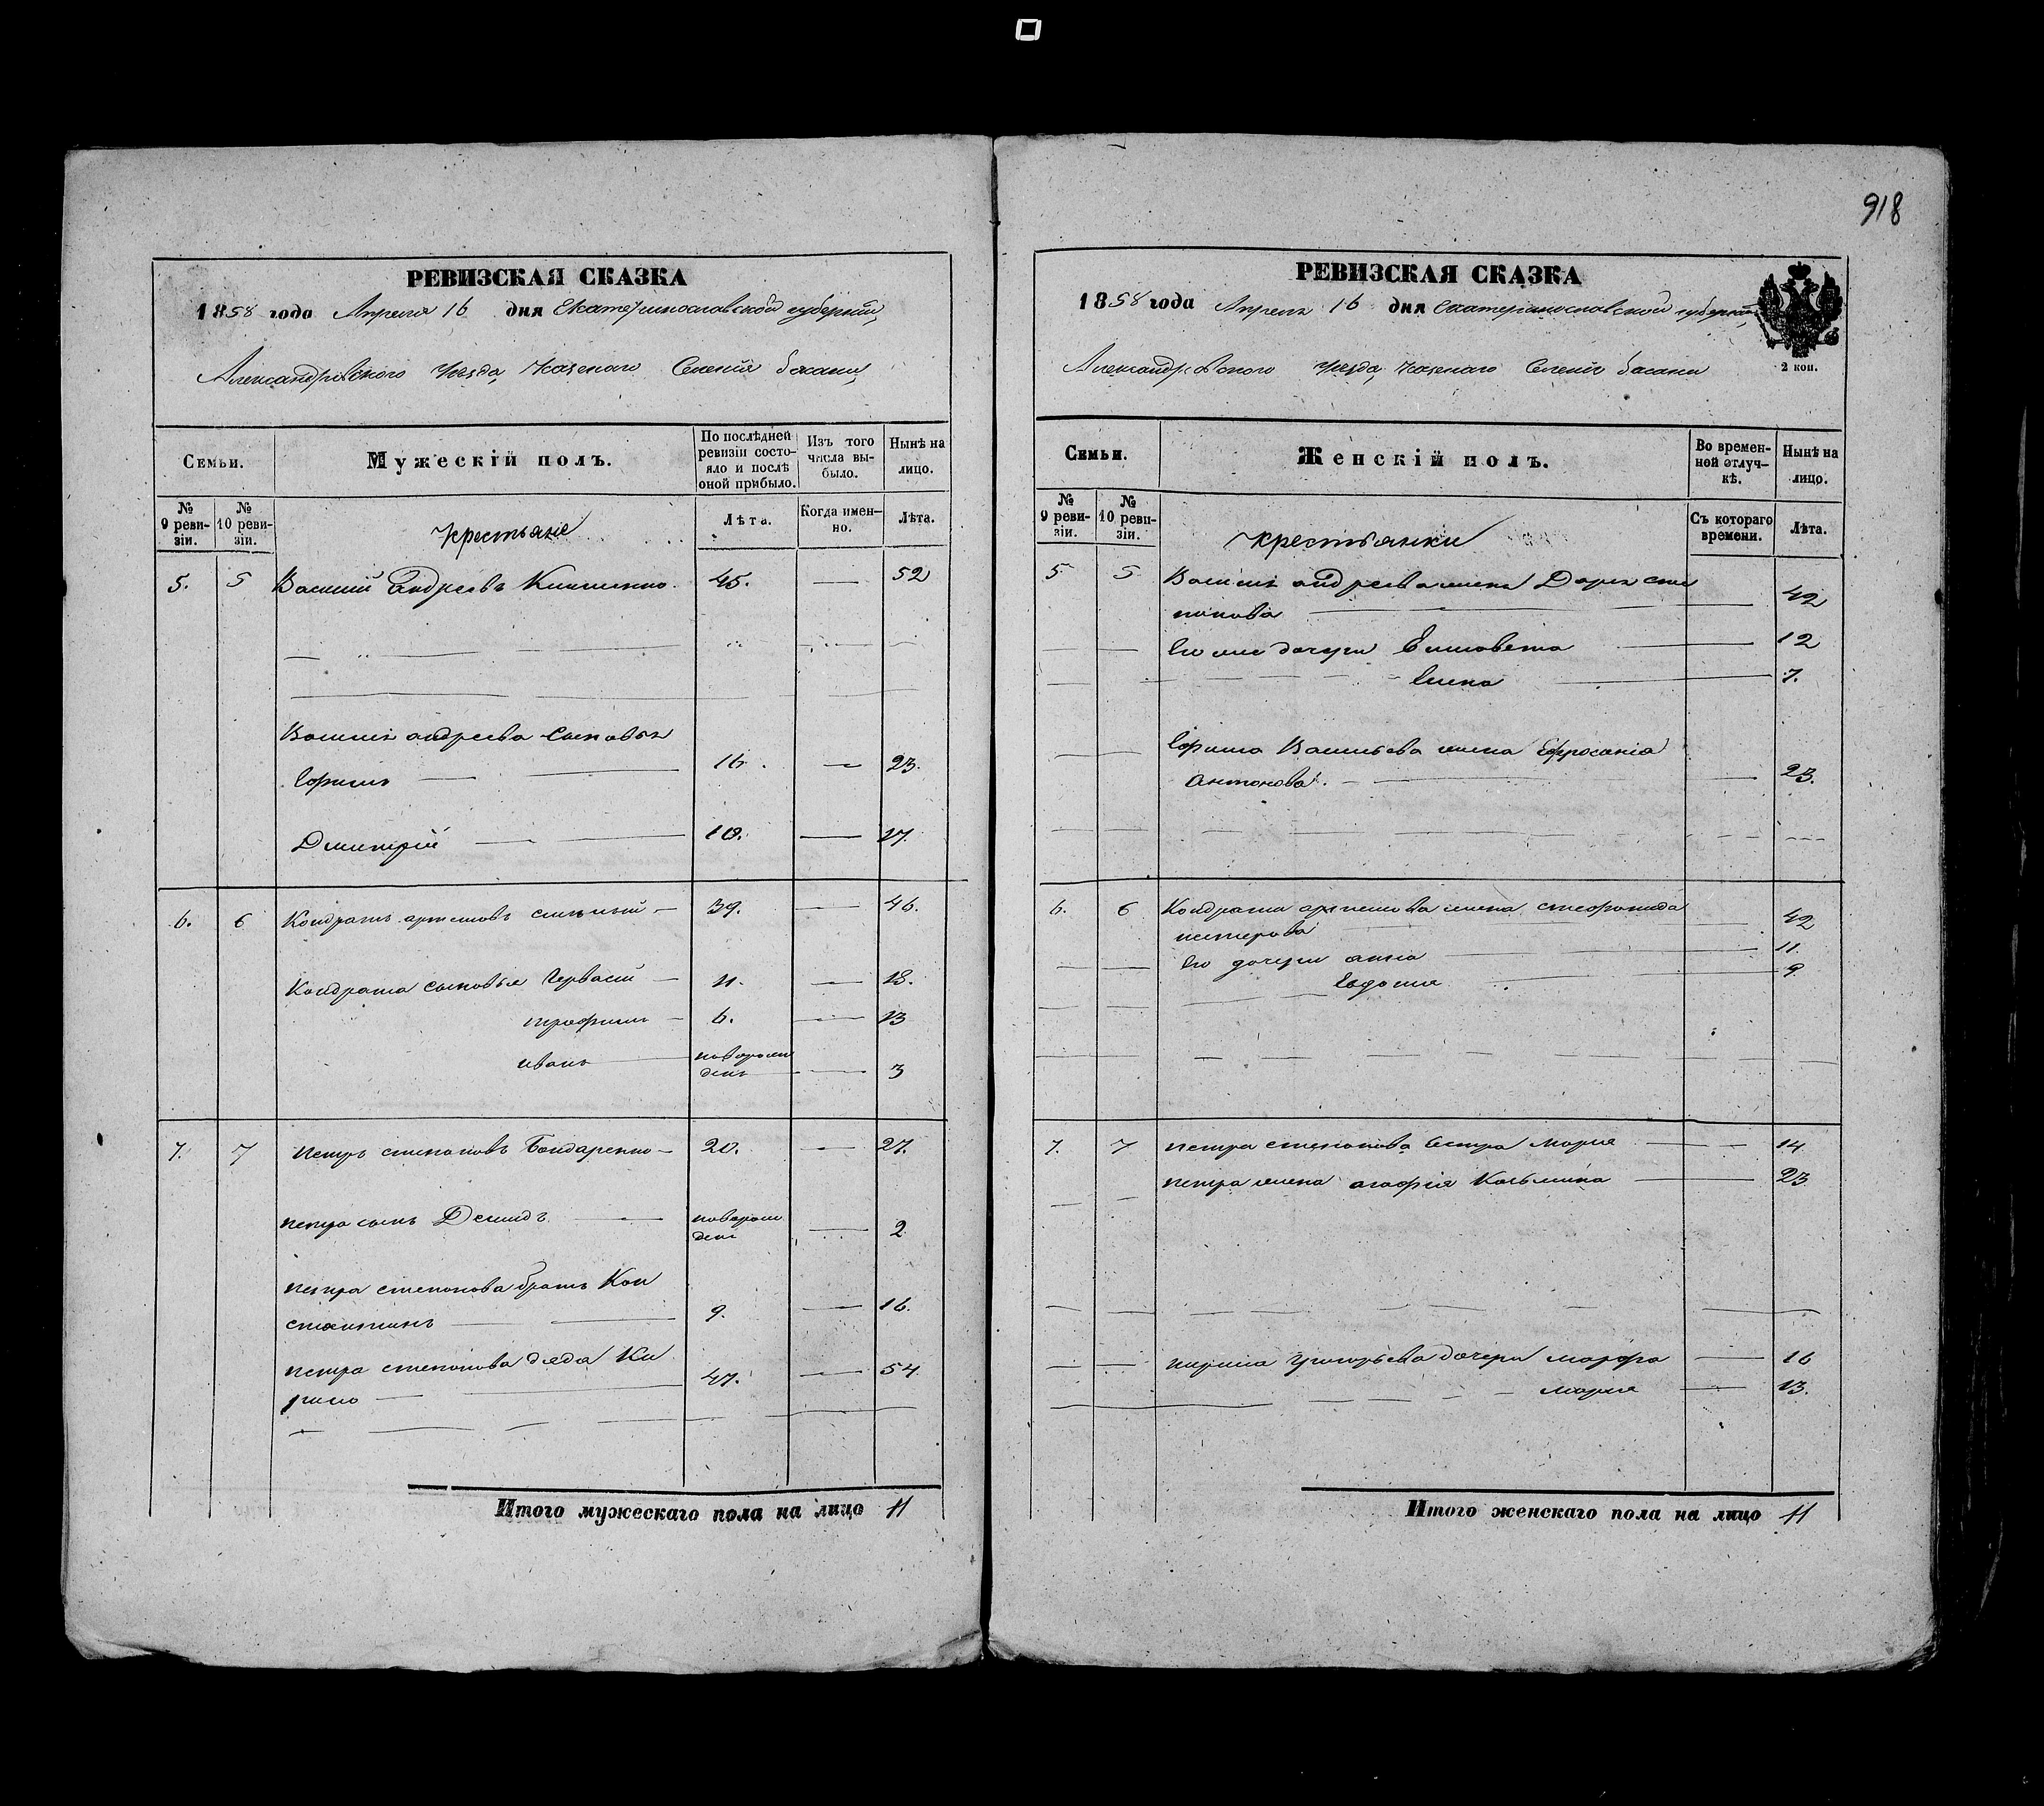 918
РЕВИЗСКАЯ СКАЗКА
1858 года Апреля 16 дня Екатеринославской губернии,
Александровского Уезда, Казенаго Селения басани,
Семьи.
Мужескій полъ.
По послѣдней ревизіи состояло и послѣ оной прибыло.
Изъ того числа выбыло.
Нынѣ на лицо.
№ 9 ревизіи.
№ 10 ревизіи.
Крестьяне
Лѣта.
Когда именно.
Лѣта.
5. 5 Василий Андреевъ 45. — 52
Василия андреева сыновья
Ефимъ 16. — 23.
Дмитрий 10. — 17.
6. 6 Кондратъ артемовъ 39. — 46.
Кондрата сыновья Герваси 11. — 18.
трофимъ 6. — 13
иванъ — новорож
денъ — 3
7. 7 петръ степановъ Бондаренко 20. — 27.
петра сынъ Демидъ — новорож
денъ — 2
петра степанова братъ Кон
стантинъ 9. — 16.
петра степанова дядя Ки
рило 47. — 54
Итого мужескаго пола на лицо 11
РЕВИЗСКАЯ СКАЗКА
1858 года Апреля 16 дня Екатеринославской губернии,
Александровского Уезда, Казенаго Селения басани
2 коп.
Семьи.
Женскій полъ.
Во временной отлучкѣ.
Нынѣ на лицо.
№ 9 ревизіи.
№ 10 ревизіи.
Крестьянки
Съ котораго времени.
Лѣта.
5 5 Василия андреева жена Дарья сте
панова — 42
Его же дочери Елисовета — 12
Елена — 7.
Ефима Васильева жена Ефросания
Антонова — 23.
6. 6 Кондрата артемова жена стефанида
нестерова — 42
Его дочери анна — 11
Евдокия — 9
7. 7 петра степанова сестра Мария — 14
петра жена агафия Козьмина — 23
кирила Григорьева дочери марфа — 16
мария — 13.
Итого женскаго пола на лицо 11